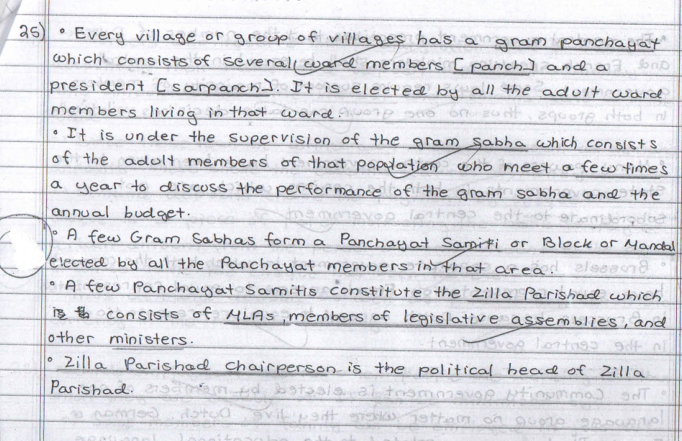 25) • Every village or group of villages has a gram panchayat
which consists of severall ward members [panch] and a
president [sarpanch]. It is elected by all the adult ward
members living in that ward.
• It is under the supervision of the gram sabha which consists
of the adult members of that population who meet a few times
a year to discuss the performance of the gram sabha and the
annual budget.
• A few Gram Sabhas form a Panchayat Samiti or Block or Mandal
elected by all the Panchayat members in that area.
• A few Panchayat Samitis constitute the Zilla Parishad which
is consists of MLAs, members of legislative assemblies, and
other ministers.
• Zilla Parishad chairperson is the political head of Zilla
Parishad.